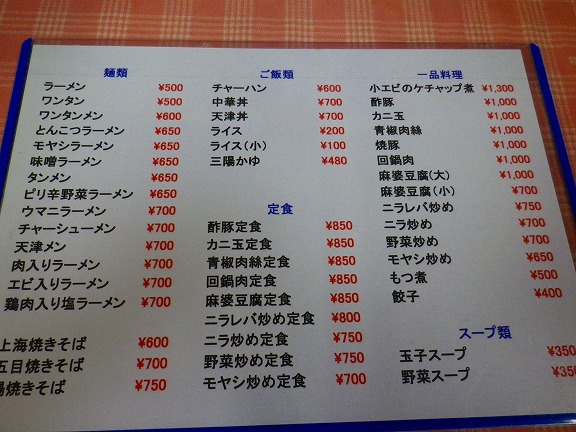 麺類
ラーメン ¥500
ワンタン ¥500
ワンタンメン ¥600
とんこつラーメン ¥650
モヤシラーメン ¥650
味噌ラーメン ¥650
タンメン ¥650
ピリ辛野菜ラーメン ¥650
ウマニラーメン ¥700
チャーシューメン ¥700
天津メン ¥700
肉入りラーメン ¥700
エビ入りラーメン ¥700
鶏肉入り塩ラーメン ¥700
上海焼きそば ¥600
五目焼きそば ¥700
焼きそば ¥750
ご飯類
チャーハン ¥600
中華丼 ¥700
天津丼 ¥700
ライス ¥200
ライス(小) ¥100
三陽かゆ ¥480
定食
酢豚定食 ¥850
カニ玉定食 ¥850
青椒肉絲定食 ¥850
回鍋肉定食 ¥850
麻婆豆腐定食 ¥850
ニラレバ炒め定食 ¥800
ニラ炒め定食 ¥750
野菜炒め定食 ¥750
モヤシ炒め定食 ¥700
一品料理
小エビのケチャップ煮 ¥1,300
酢豚 ¥1,000
カニ玉 ¥1,000
青椒肉絲 ¥1,000
焼豚 ¥1,000
回鍋肉 ¥1,000
麻婆豆腐(大) ¥1,000
麻婆豆腐(小) ¥700
ニラレバ炒め ¥750
ニラ炒め ¥700
野菜炒め ¥700
モヤシ炒め ¥650
もつ煮 ¥500
餃子 ¥400
スープ類
玉子スープ ¥350
野菜スープ ¥350